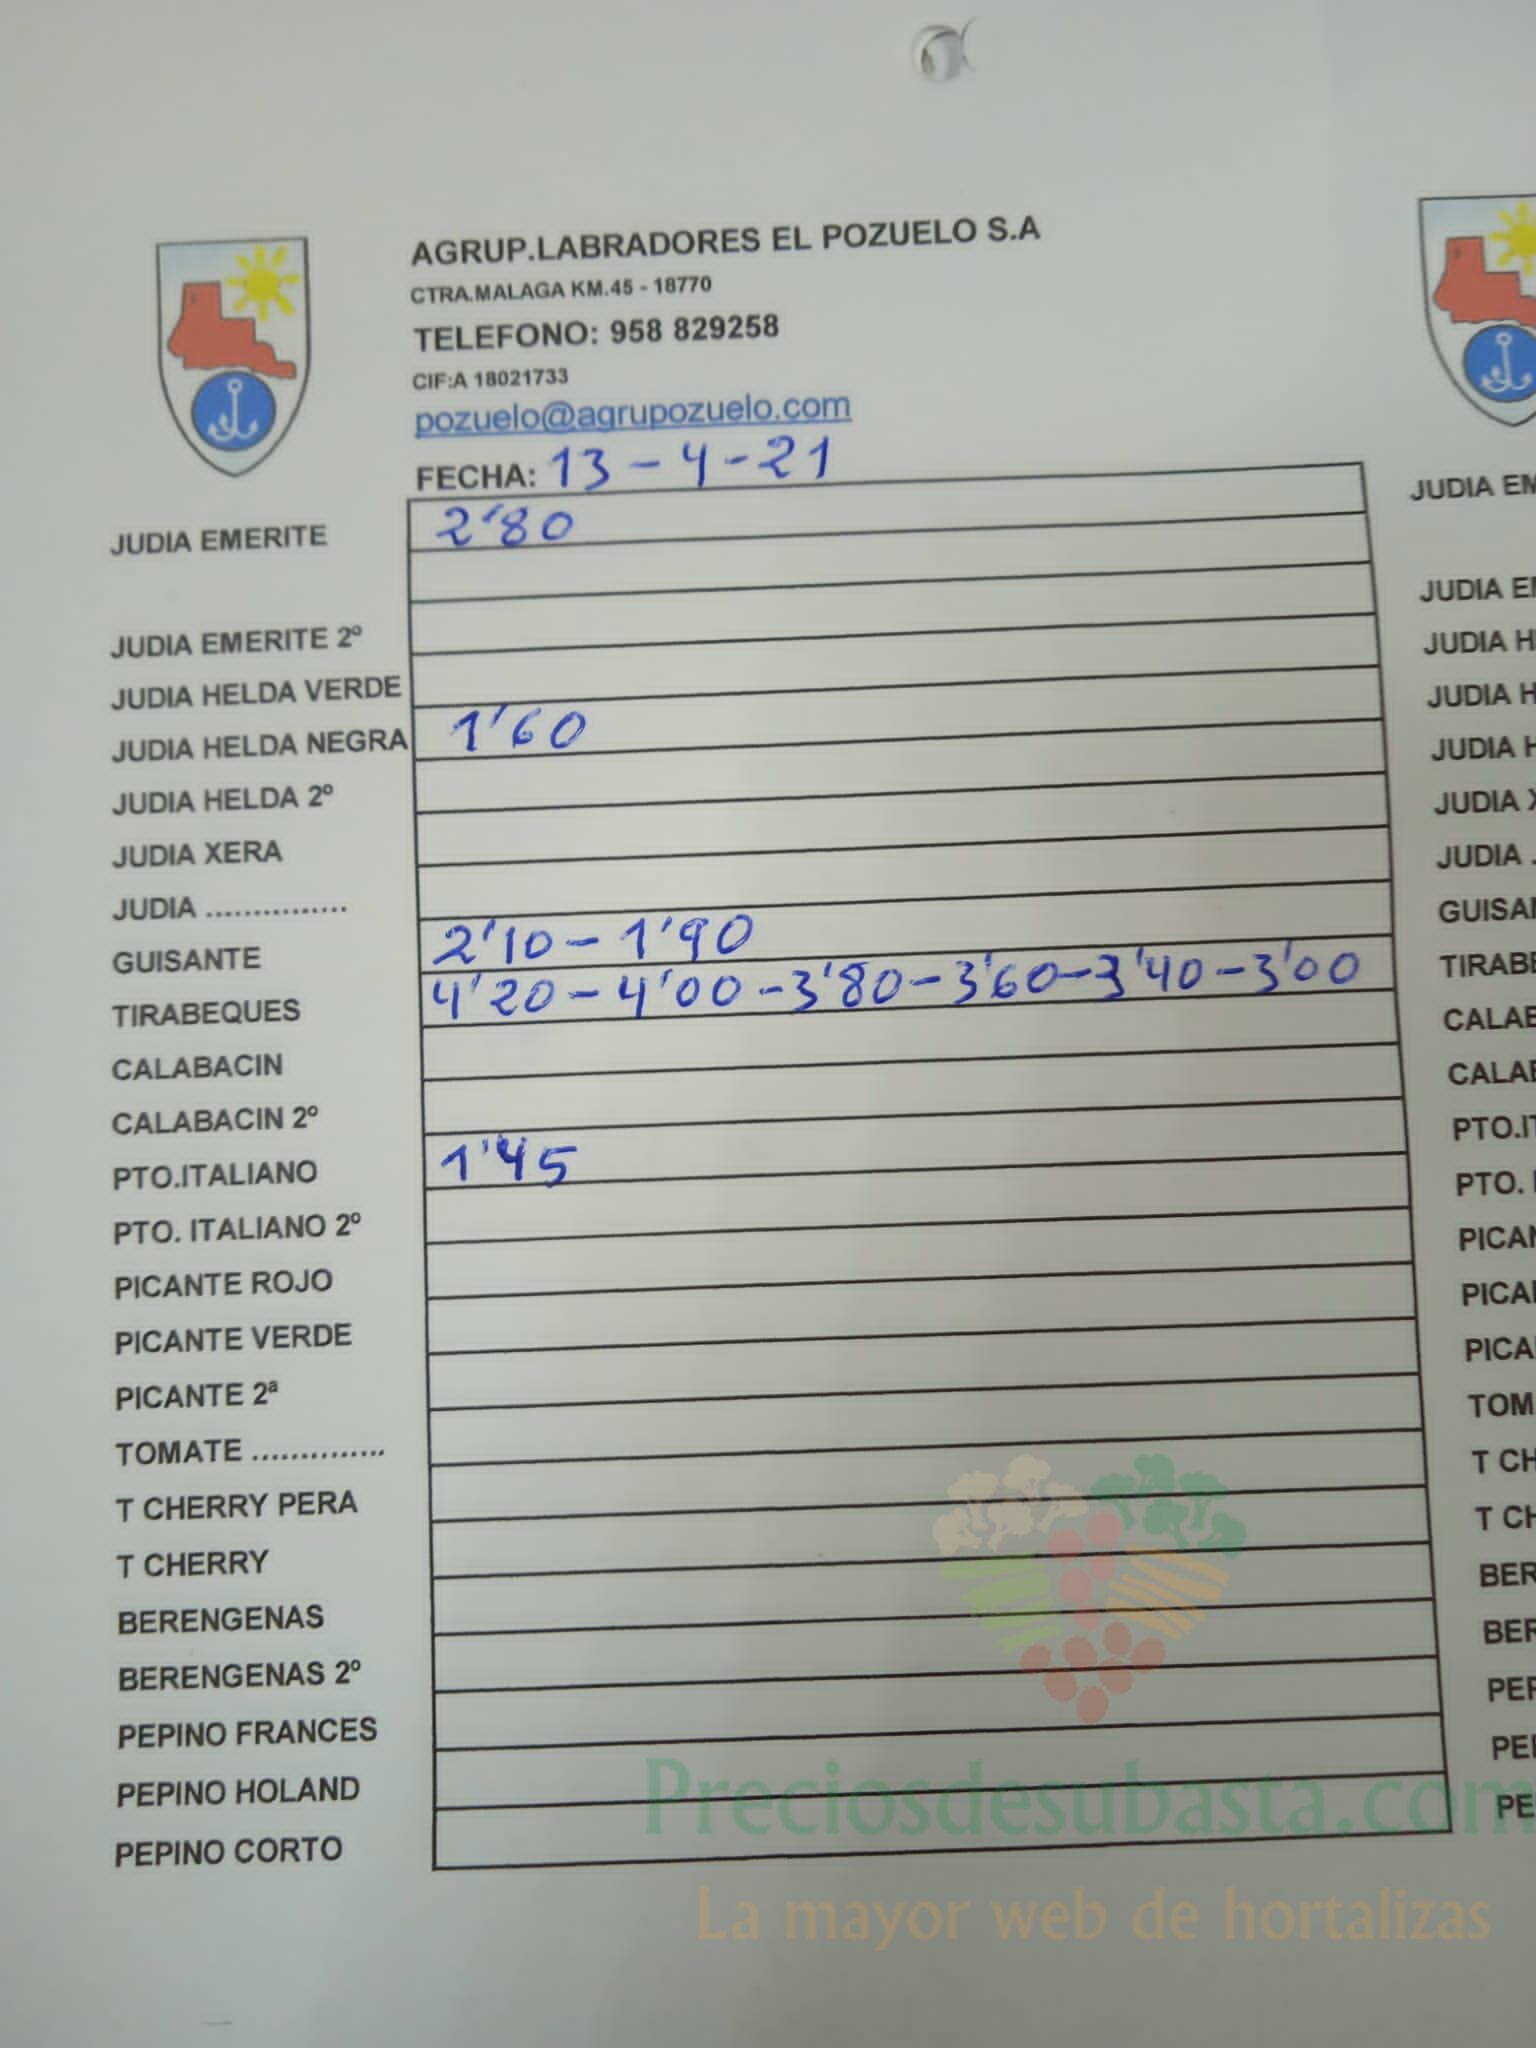 AGRUP.LABRADORES EL POZUELO S.A
CTRA.MALAGA KM.45 - 18770
TELEFONO: 958 829258
CIF:A 18021733
pozuelo@agrupozuelo.com
FECHA: 13-4-21
JUDIA EMERITE 2'80
JUDIA EMERITE 2º
JUDIA HELDA VERDE
JUDIA HELDA NEGRA 1'60
JUDIA HELDA 2º
JUDIA XERA
JUDIA ...............
GUISANTE 2'10-1'90
TIRABEQUES 4'20-4'00-3'80-3'60-3'40-3'00
CALABACIN
CALABACIN 2º
PTO.ITALIANO 1'45
PTO. ITALIANO 2º
PICANTE ROJO
PICANTE VERDE
PICANTE 2ª
TOMATE ..............
T CHERRY PERA
T CHERRY
BERENGENAS
BERENGENAS 2º
PEPINO FRANCES
PEPINO HOLAND
PEPINO CORTO
JUDIA EM
JUDIA EM
JUDIA H
JUDIA H
JUDIA H
JUDIA X
JUDIA .
GUISAN
TIRABE
CALAB
CALAB
PTO.IT
PTO.
PICAN
PICA
PICA
TOM
T CH
T CH
BER
BER
PEP
PE
PE
Preciosdesubasta.com
La mayor web de hortalizas